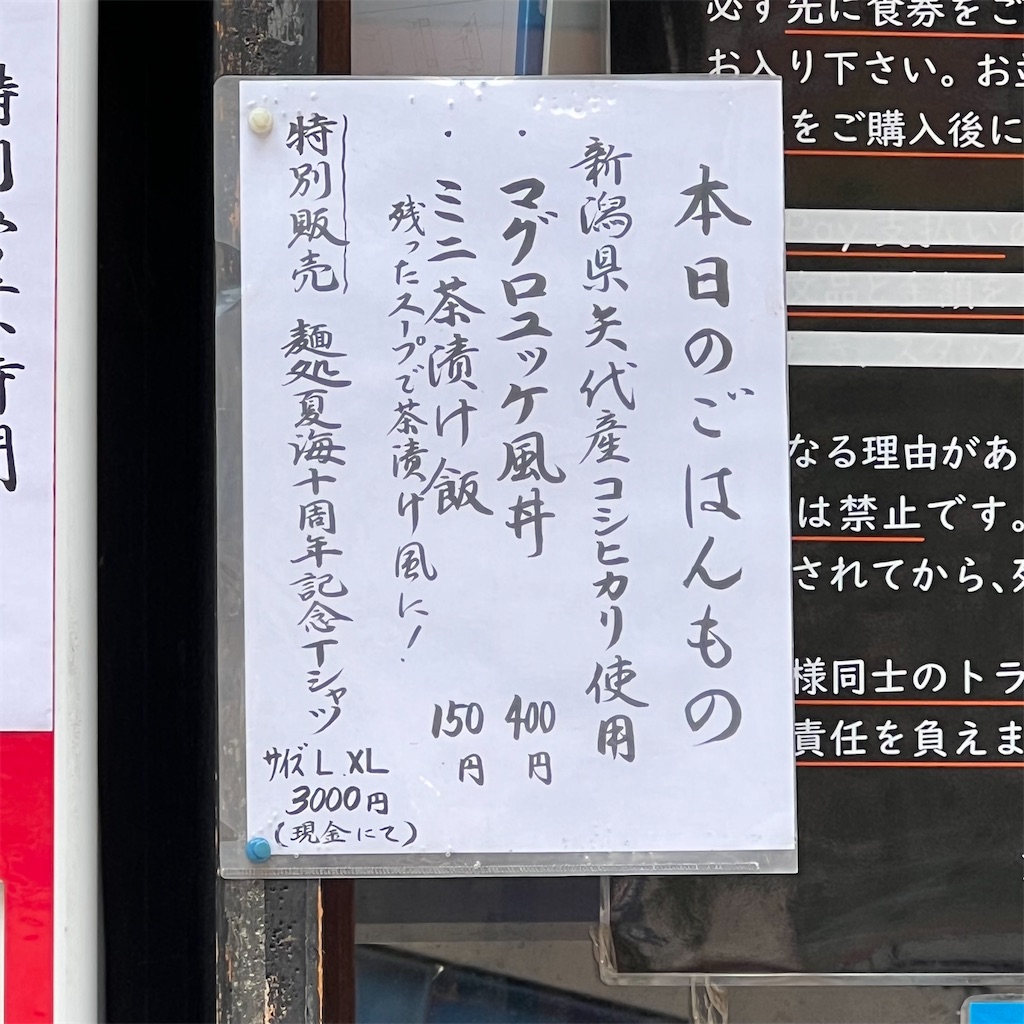 本日のごはんもの
新潟県矢代産コシヒカリ使用
・マグロユッケ風丼 400円
・ミニ茶漬け飯 150円
残ったスープで茶漬け風に!
特別販売 麺処夏海十周年記念Tシャツ
サイズL XL
3000円
(現金にて)
必ず先に食券をご
お入り下さい。お
をご購入後に
なる理由があ
は禁止です。
されてから、
様同士のトラ
責任を負えま